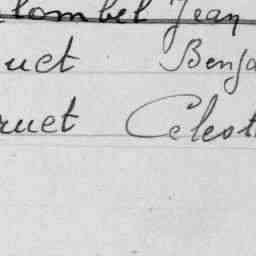 lombel Jean
uct Benja
ruet Celest